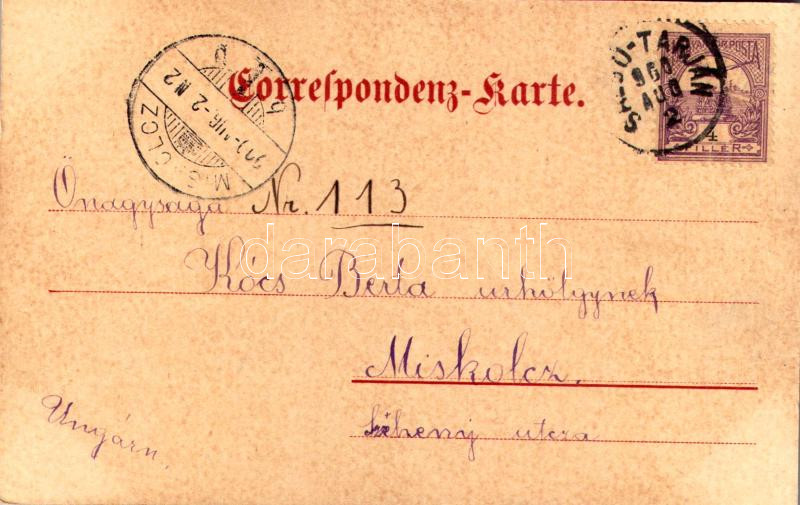 Correspondenz-Karte.
SALGÓ-TARJÁN
900
AUG
2
MAGYAR KIR. POSTA
4
FILLÉR
MISKOLCZ
900 AUG-2 N2
Őnagysága Nr. 113
Kócs Berta urhölgynek
Miskolcz.
utcza
Ungárn.
darabanth